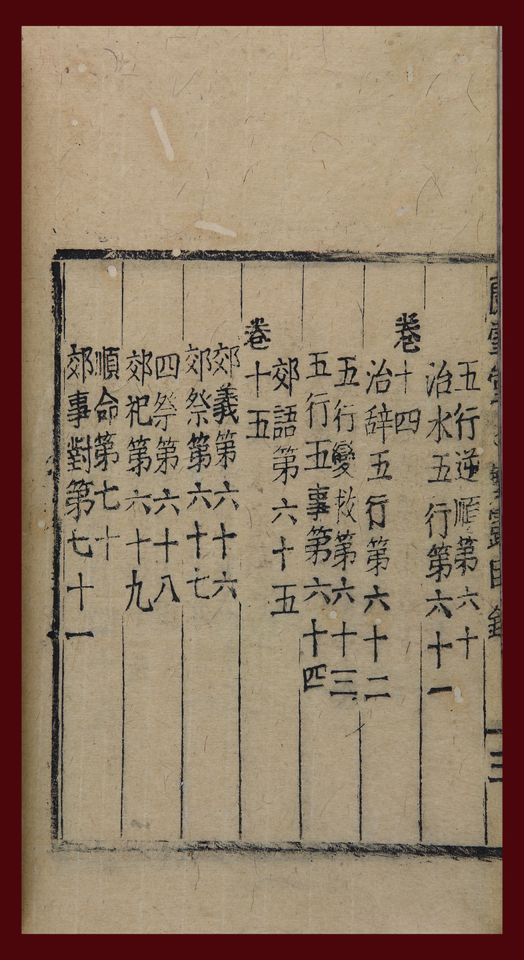 五行逆順第六十
治水五行第六十一
卷十四
治辭五行第六十二
五行變救第六十三
五行五事第六十四
郊語第六十五
卷十五
郊義第六十六
郊祭第六十七
四祭第六十八
郊祀第六十九
順命第七十
郊事對第七十一